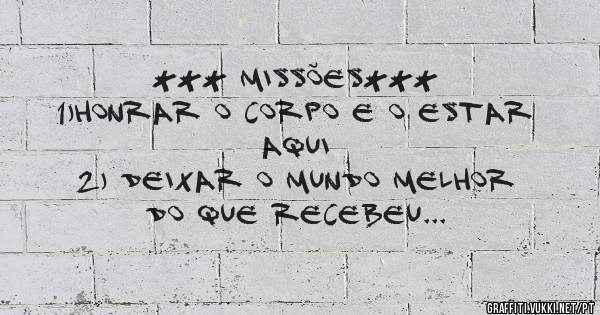 *** MISSÕES***
1)HONRAR O CORPO E O ESTAR
AQUI
2) DEIXAR O MUNDO MELHOR
DO QUE RECEBEU...
GRAFFITI.VUKKI.NET/PT